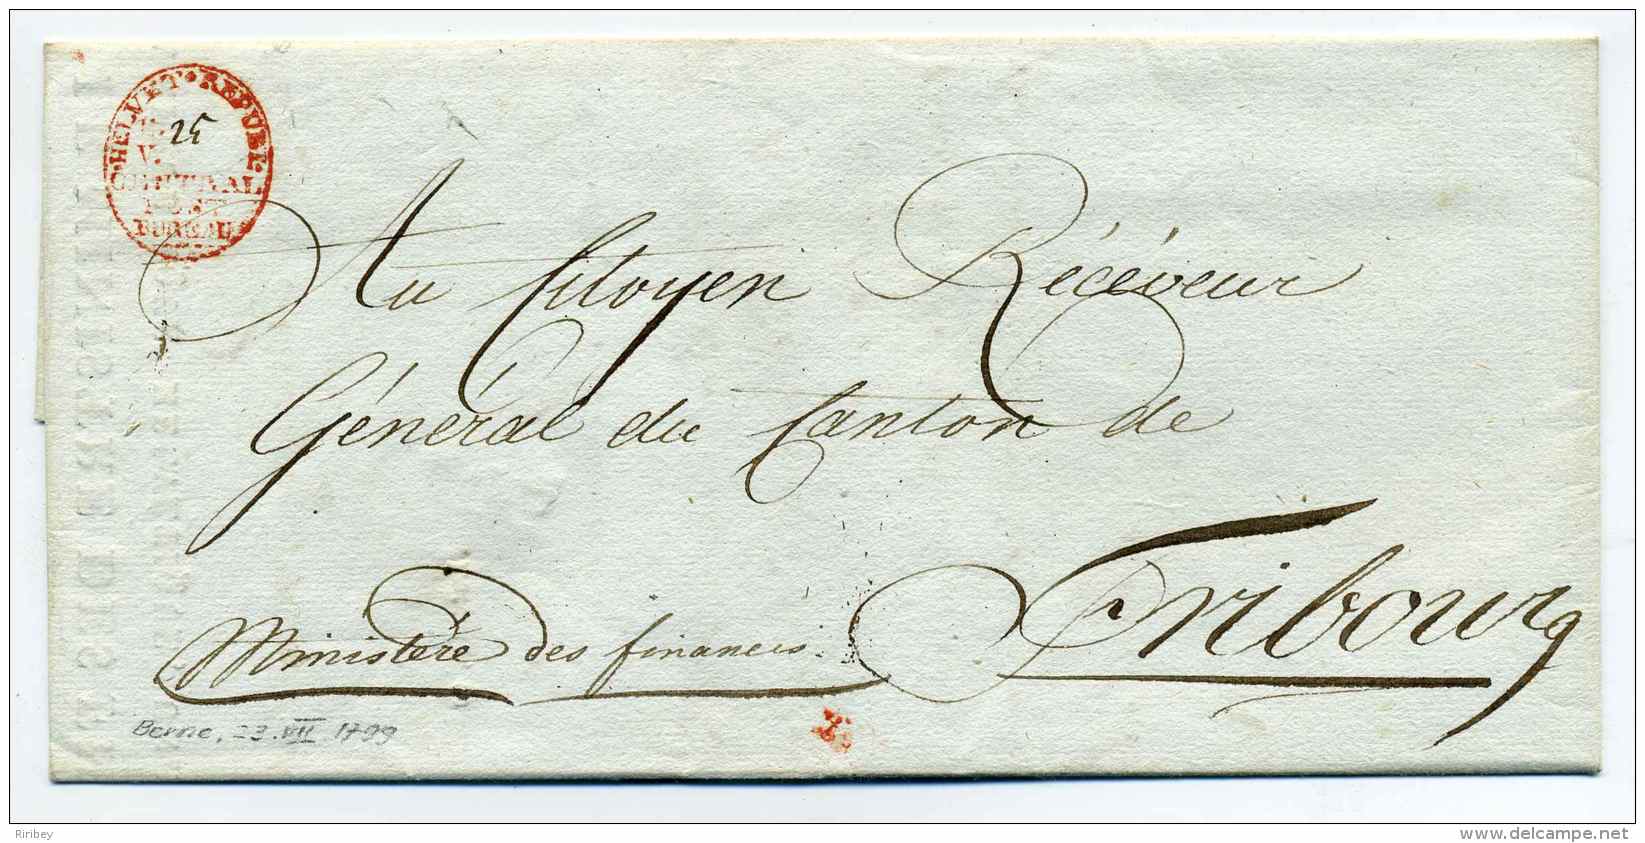 HELVET • REPUBL.
25
V.
CENTRAL
POST
BUREAU
Au Citoyen Récéveur
Général du Canton de
Fribourg
Ministère des finances
Berne, 23.VII 1799
Riribey
http://www.delcampe.net